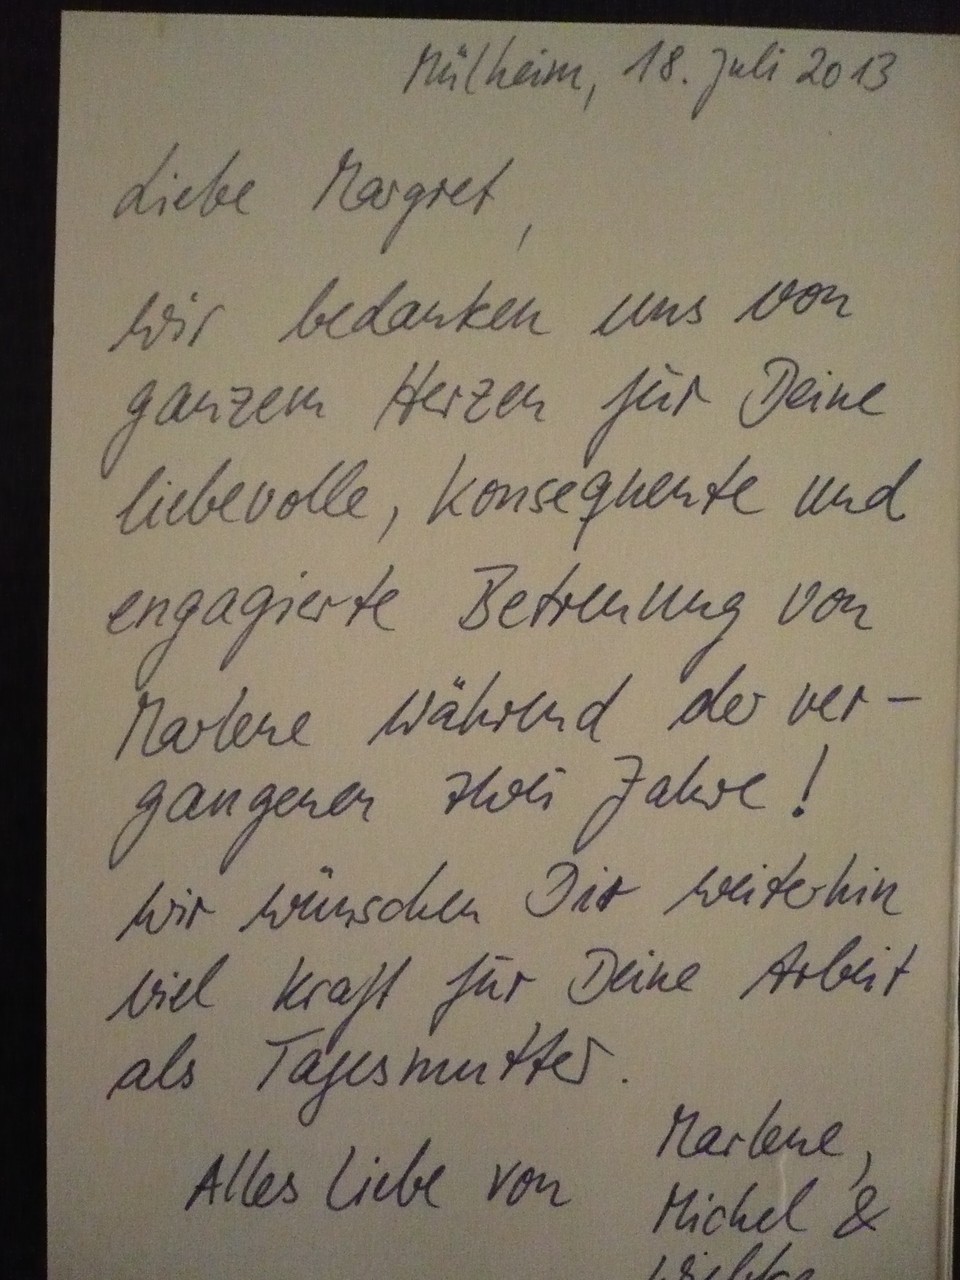 Mülheim, 18. Juli 2013
Liebe Margret,
wir bedanken uns von
ganzem Herzen für Deine
liebevolle, konsequente und
engagierte Betreuung von
Marlene während der ver-
gangenen zwei Jahre!
Wir wünschen Dir weiterhin
viel Kraft für Deine Arbeit
als Tagesmutter.
Alles Liebe von Marlene,
Michel &
Wiebke